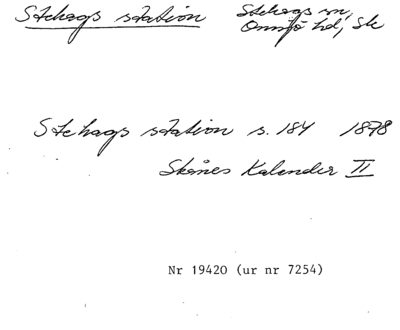 Stehags station
Stehags sn,
Onsjö hd, Sk
Stehags station s. 184 1878
Skånes Kalender II
Nr 19420 (ur nr 7254)